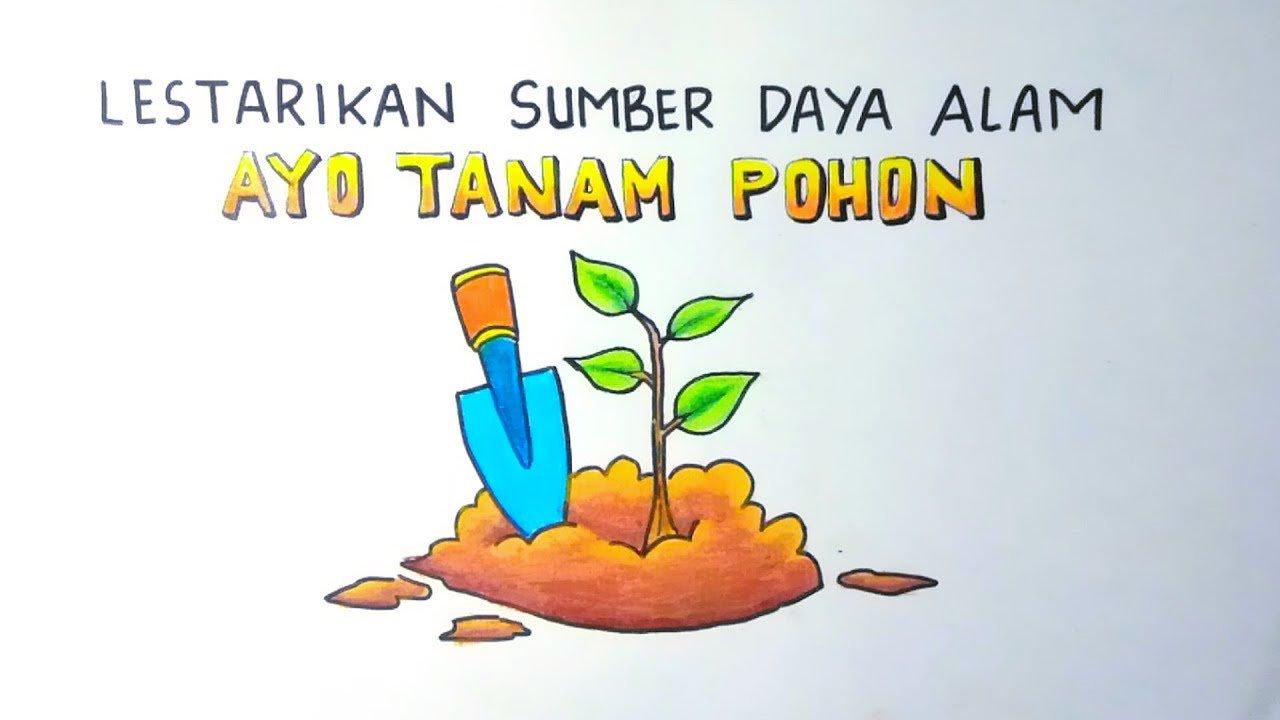 LESTARIKAN SUMBER DAYA ALAM
AYO TANAM POHON